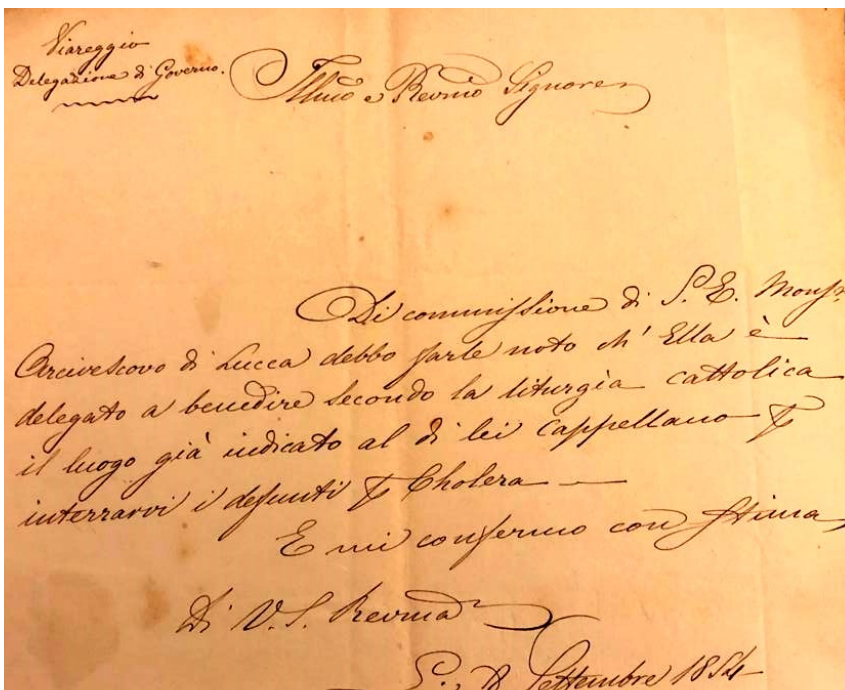 Viareggio
Delegazione di Governo.
Illmo e Revmo Signore
Di commissione di S. E. Monsr.
Arcivescovo di Lucca debbo farle noto ch' Ella è
delegato a benedire secondo la liturgia cattolica
il luogo già indicato al di lei Cappellano
interrarvi i defunti Cholera —
E mi confermo con stima
Di V. S. Revma
Settembre 1854